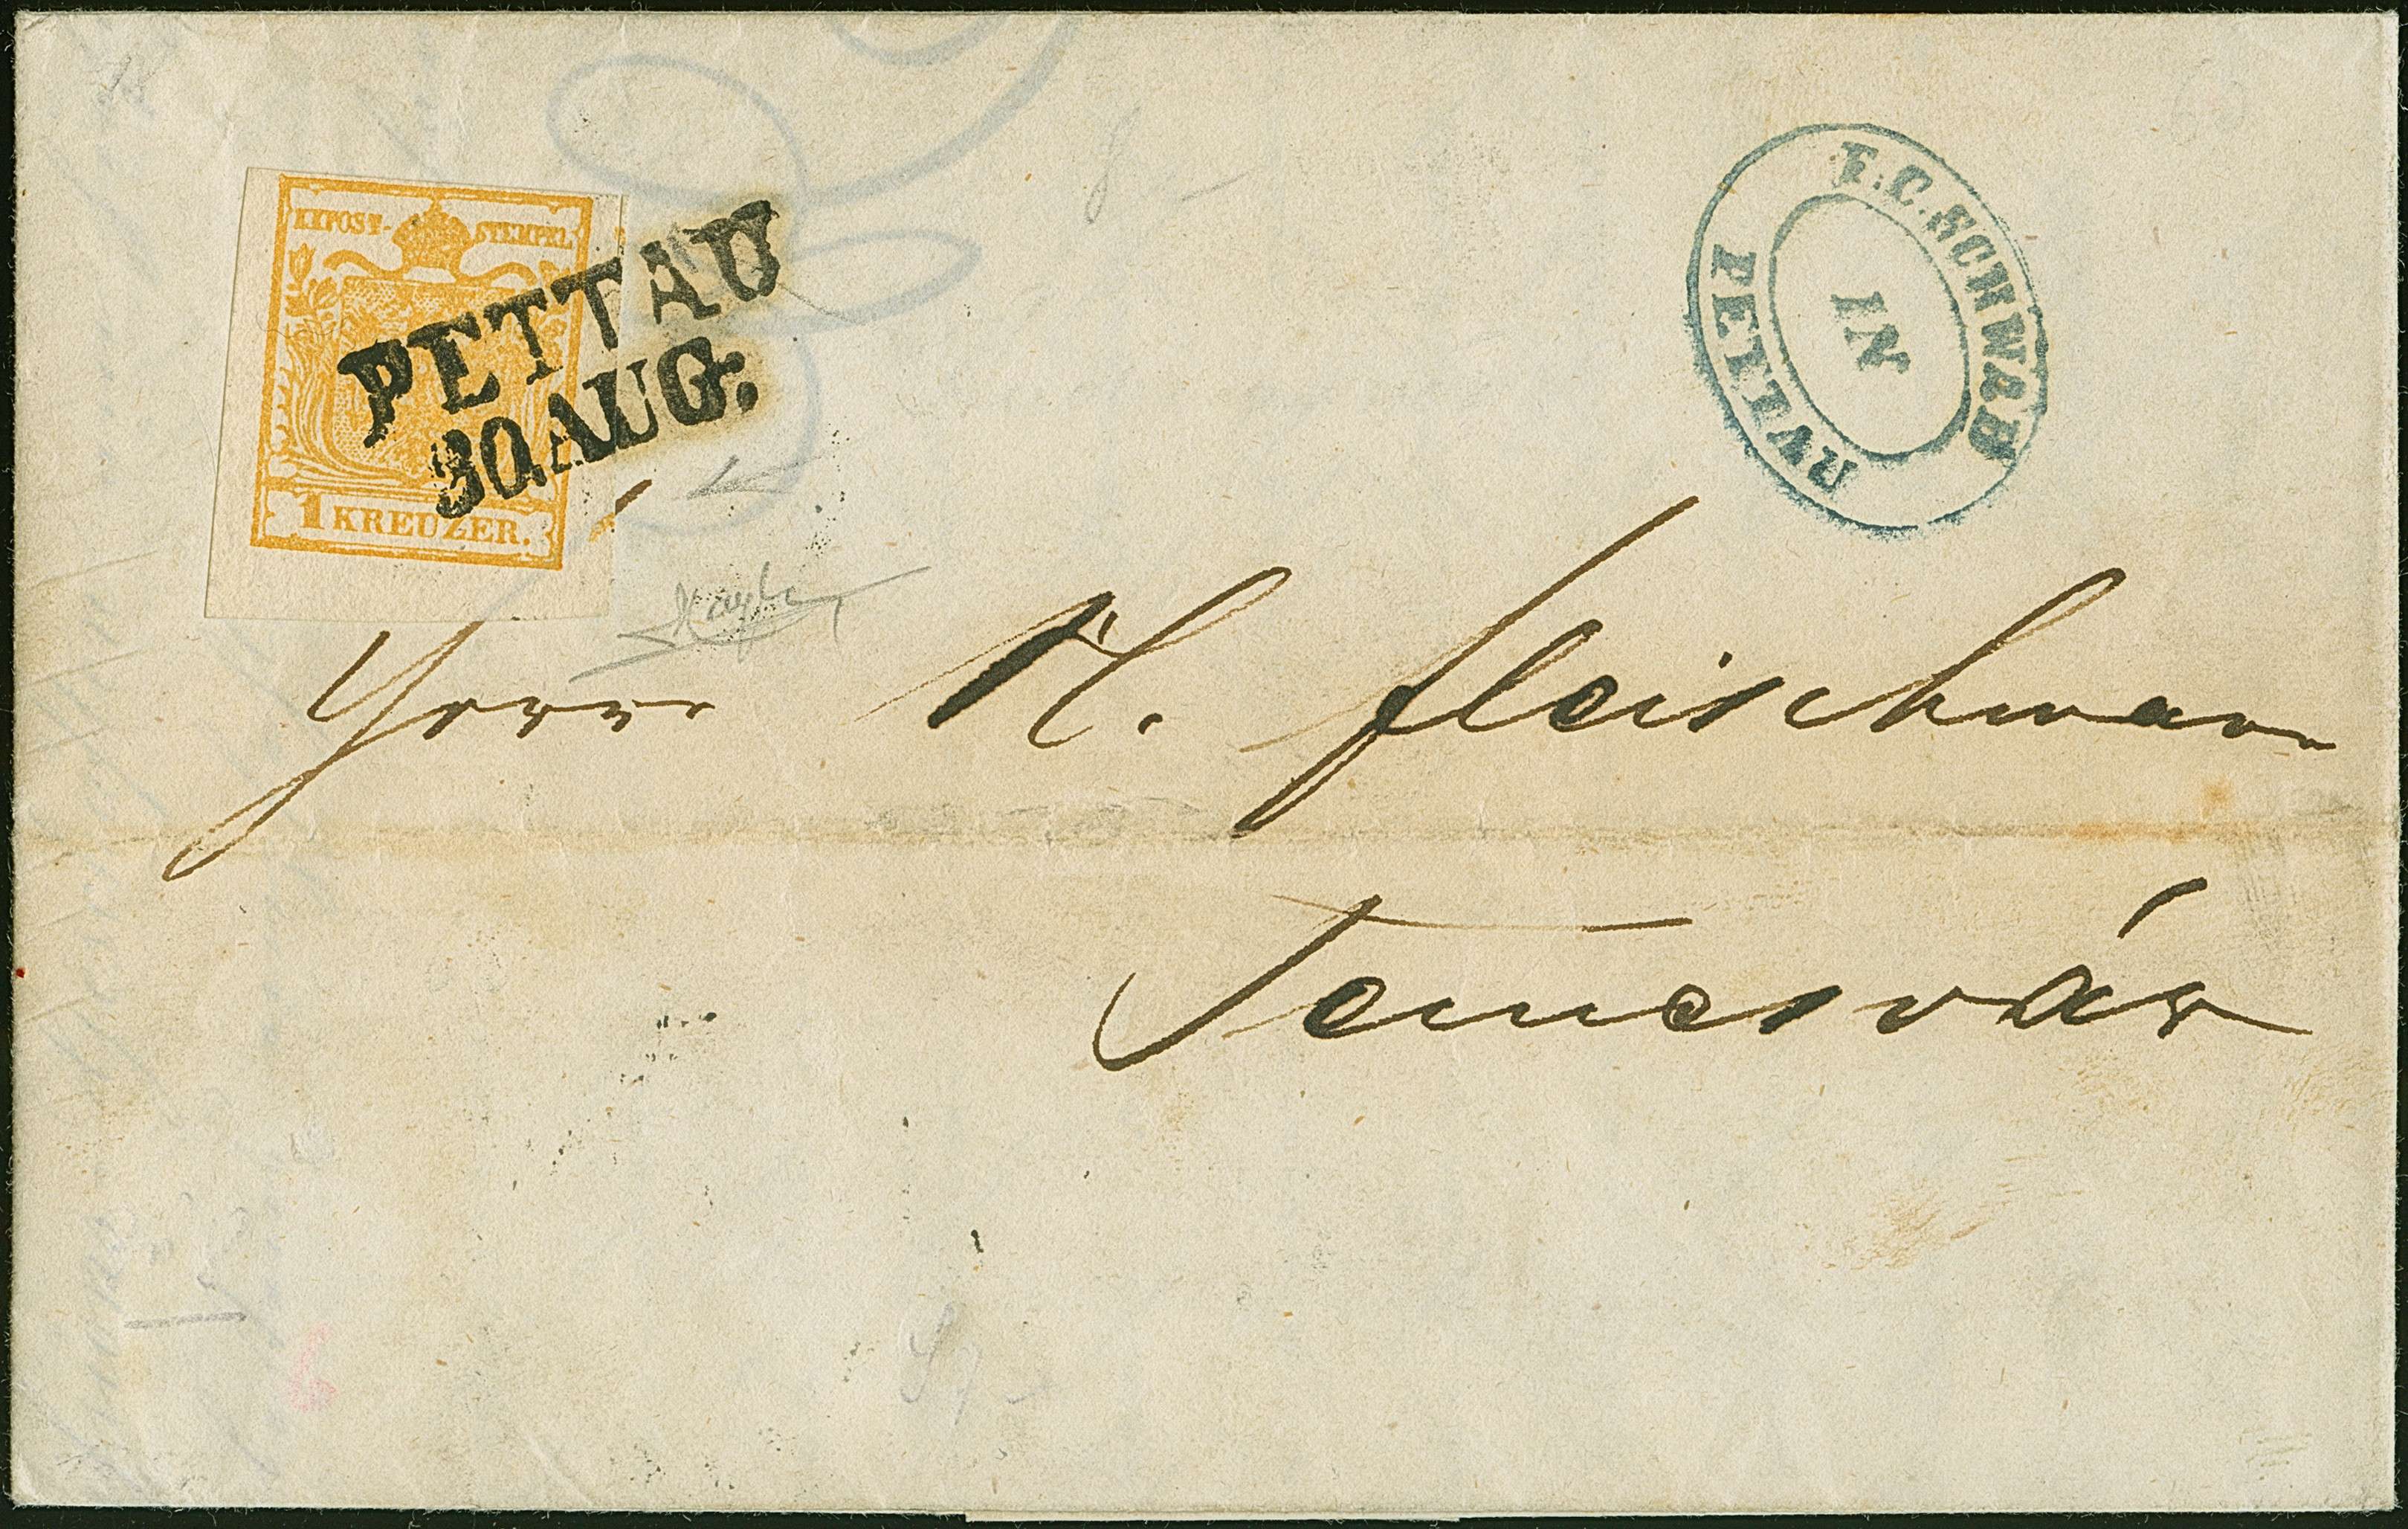 KKPOST-STEMPEL
1 KREUZER.
PETTAU
30 AUG:
F.C. SCHWAB
IN
PETTAU
Herrn M. Fleischman
Temesvár